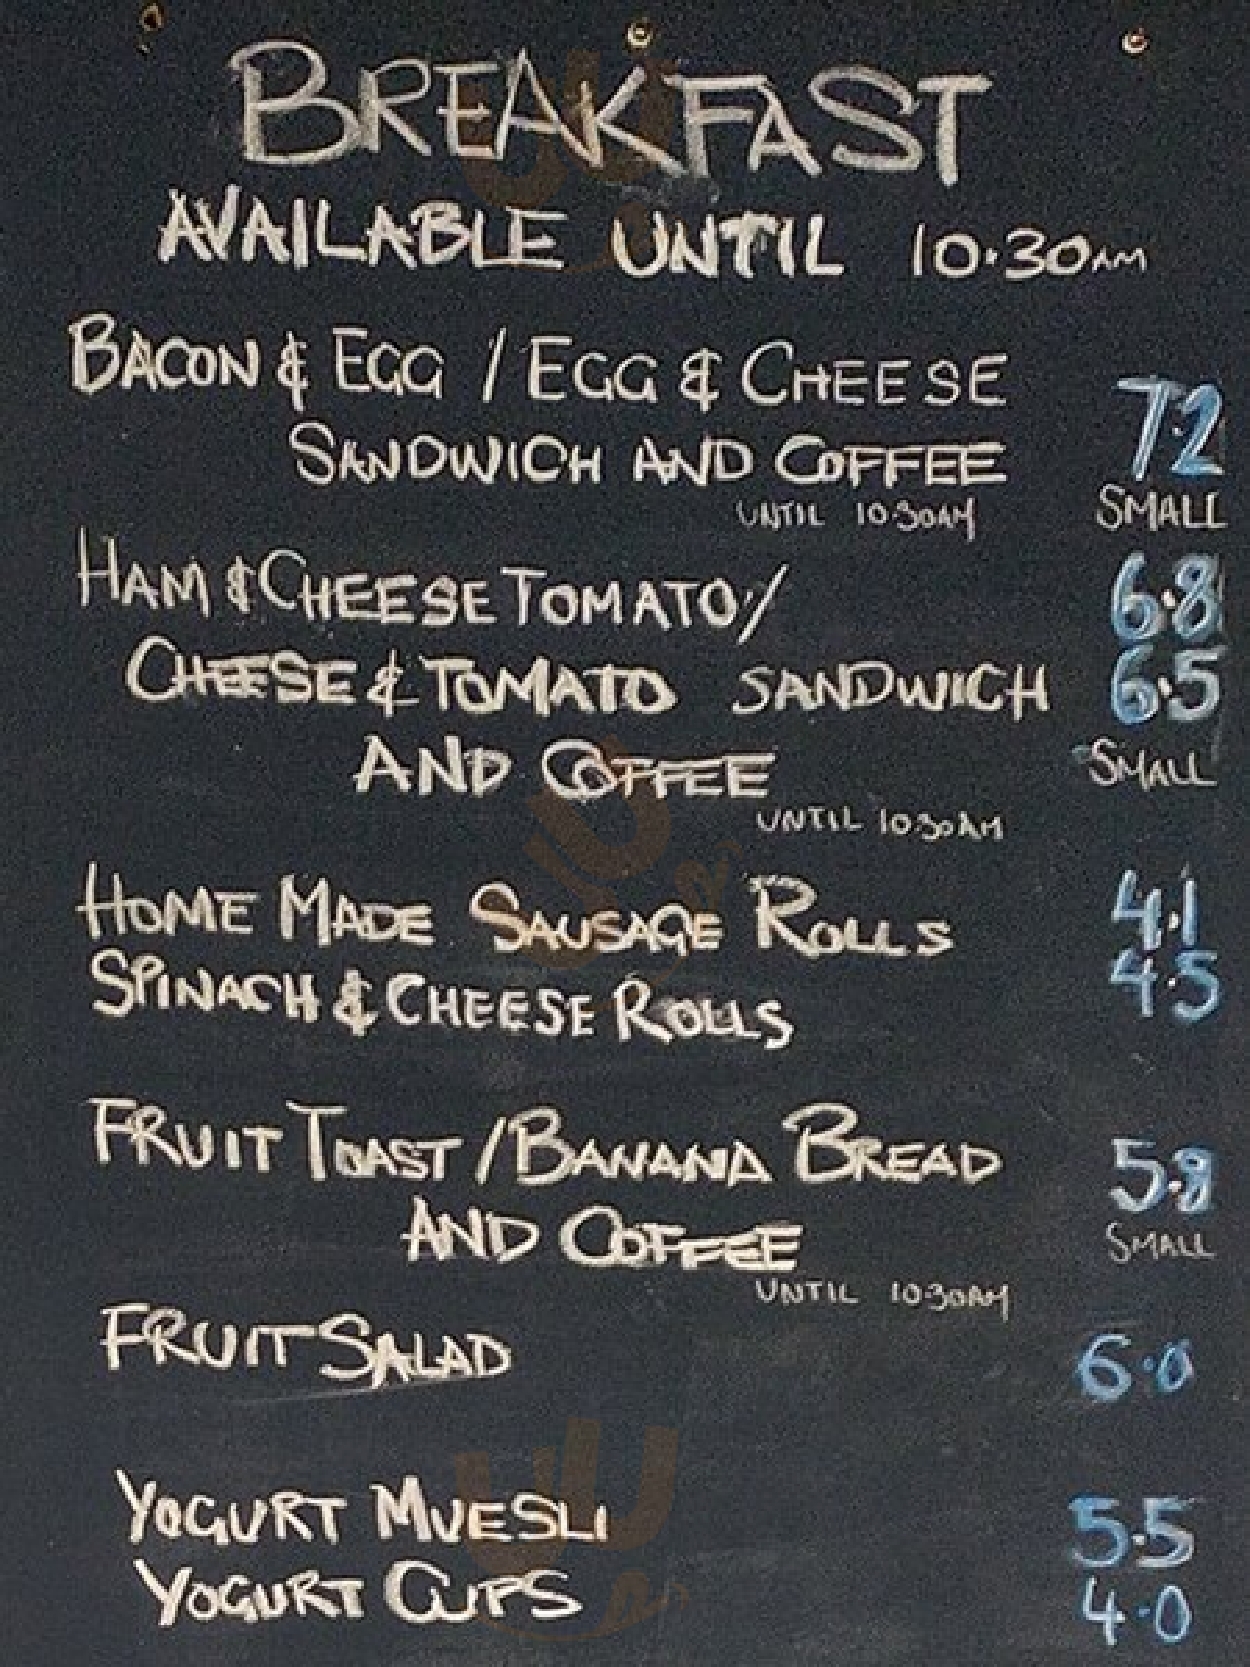 BREAKFAST
AVAILABLE UNTIL 10·30AM
BACON & EGG / EGG & CHEESE
SANDWICH AND COFFEE 7·2
UNTIL 10·30AM SMALL
HAM & CHEESE TOMATO/ 6·8
CHEESE & TOMATO SANDWICH 6·5
AND COFFEE SMALL
UNTIL 10·30AM
HOME MADE SAUSAGE ROLLS 4·1
SPINACH & CHEESE ROLLS 4·5
FRUIT TOAST / BANANA BREAD 5·8
AND COFFEE SMALL
UNTIL 10·30AM
FRUIT SALAD 6·0
YOGURT MUESLI 5·5
YOGURT CUPS 4·0